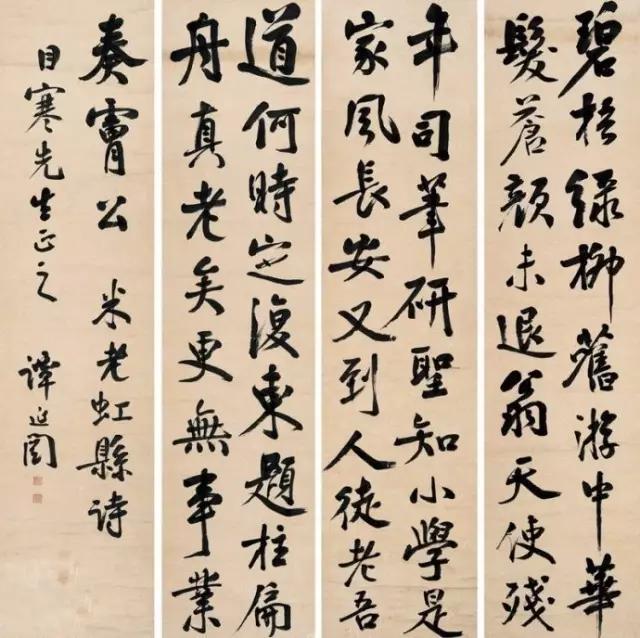 碧梧綠栁舊游中華
髮蒼顏未退翁天使殘
年司筆研聖知小學是
家風長安又到人徒老吾
道何時定復東題柱扁
舟真老矣更無事業
奏膚公 米老虹縣詩
目寒先生正之 譚延闓